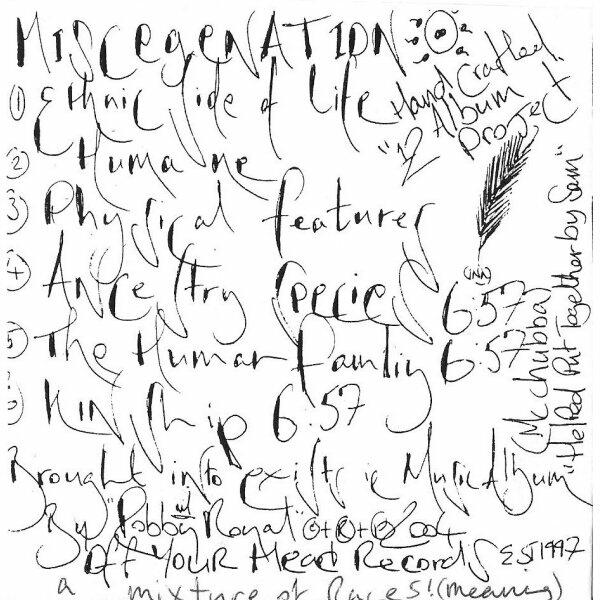 MISCEGENATION
"12 Hand Crafted
Album
Project"
① Ethnic Side of Life
② Humane
③ Physical features
④ Ancestry Species 6:57
⑤ The Human Family 6:57
Kin Ship 6:57
Mc chubba
"Helped Put Together by Sam"
Brought into existence Music Album
By "Robby Royal" 2004
Off YOUR Head Records EST 1997
a mixture of Races! (meaning)